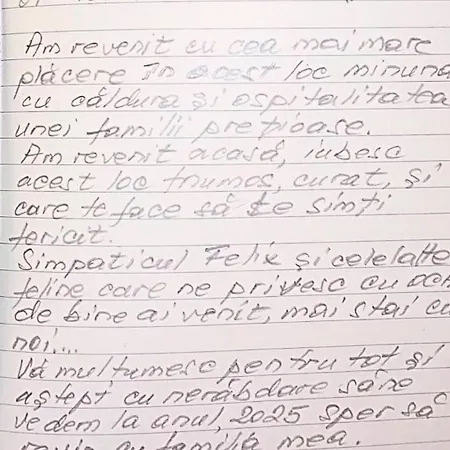 Am revenit cu cea mai mare
plăcere în acest loc minuna
cu căldura și ospitalitatea
unei familii prețioase.
Am revenit acasă, iubesc
acest loc frumos, curat, și
care te face să te simți
fericit.
Simpaticul Felix și celelalte
feline care ne privesc cu och
de bine ai venit, mai stai cu
noi...
Vă mulțumesc pentru tot și
aștept cu nerăbdare să ne
vedem la anul, 2025 sper să
revin cu familia mea.